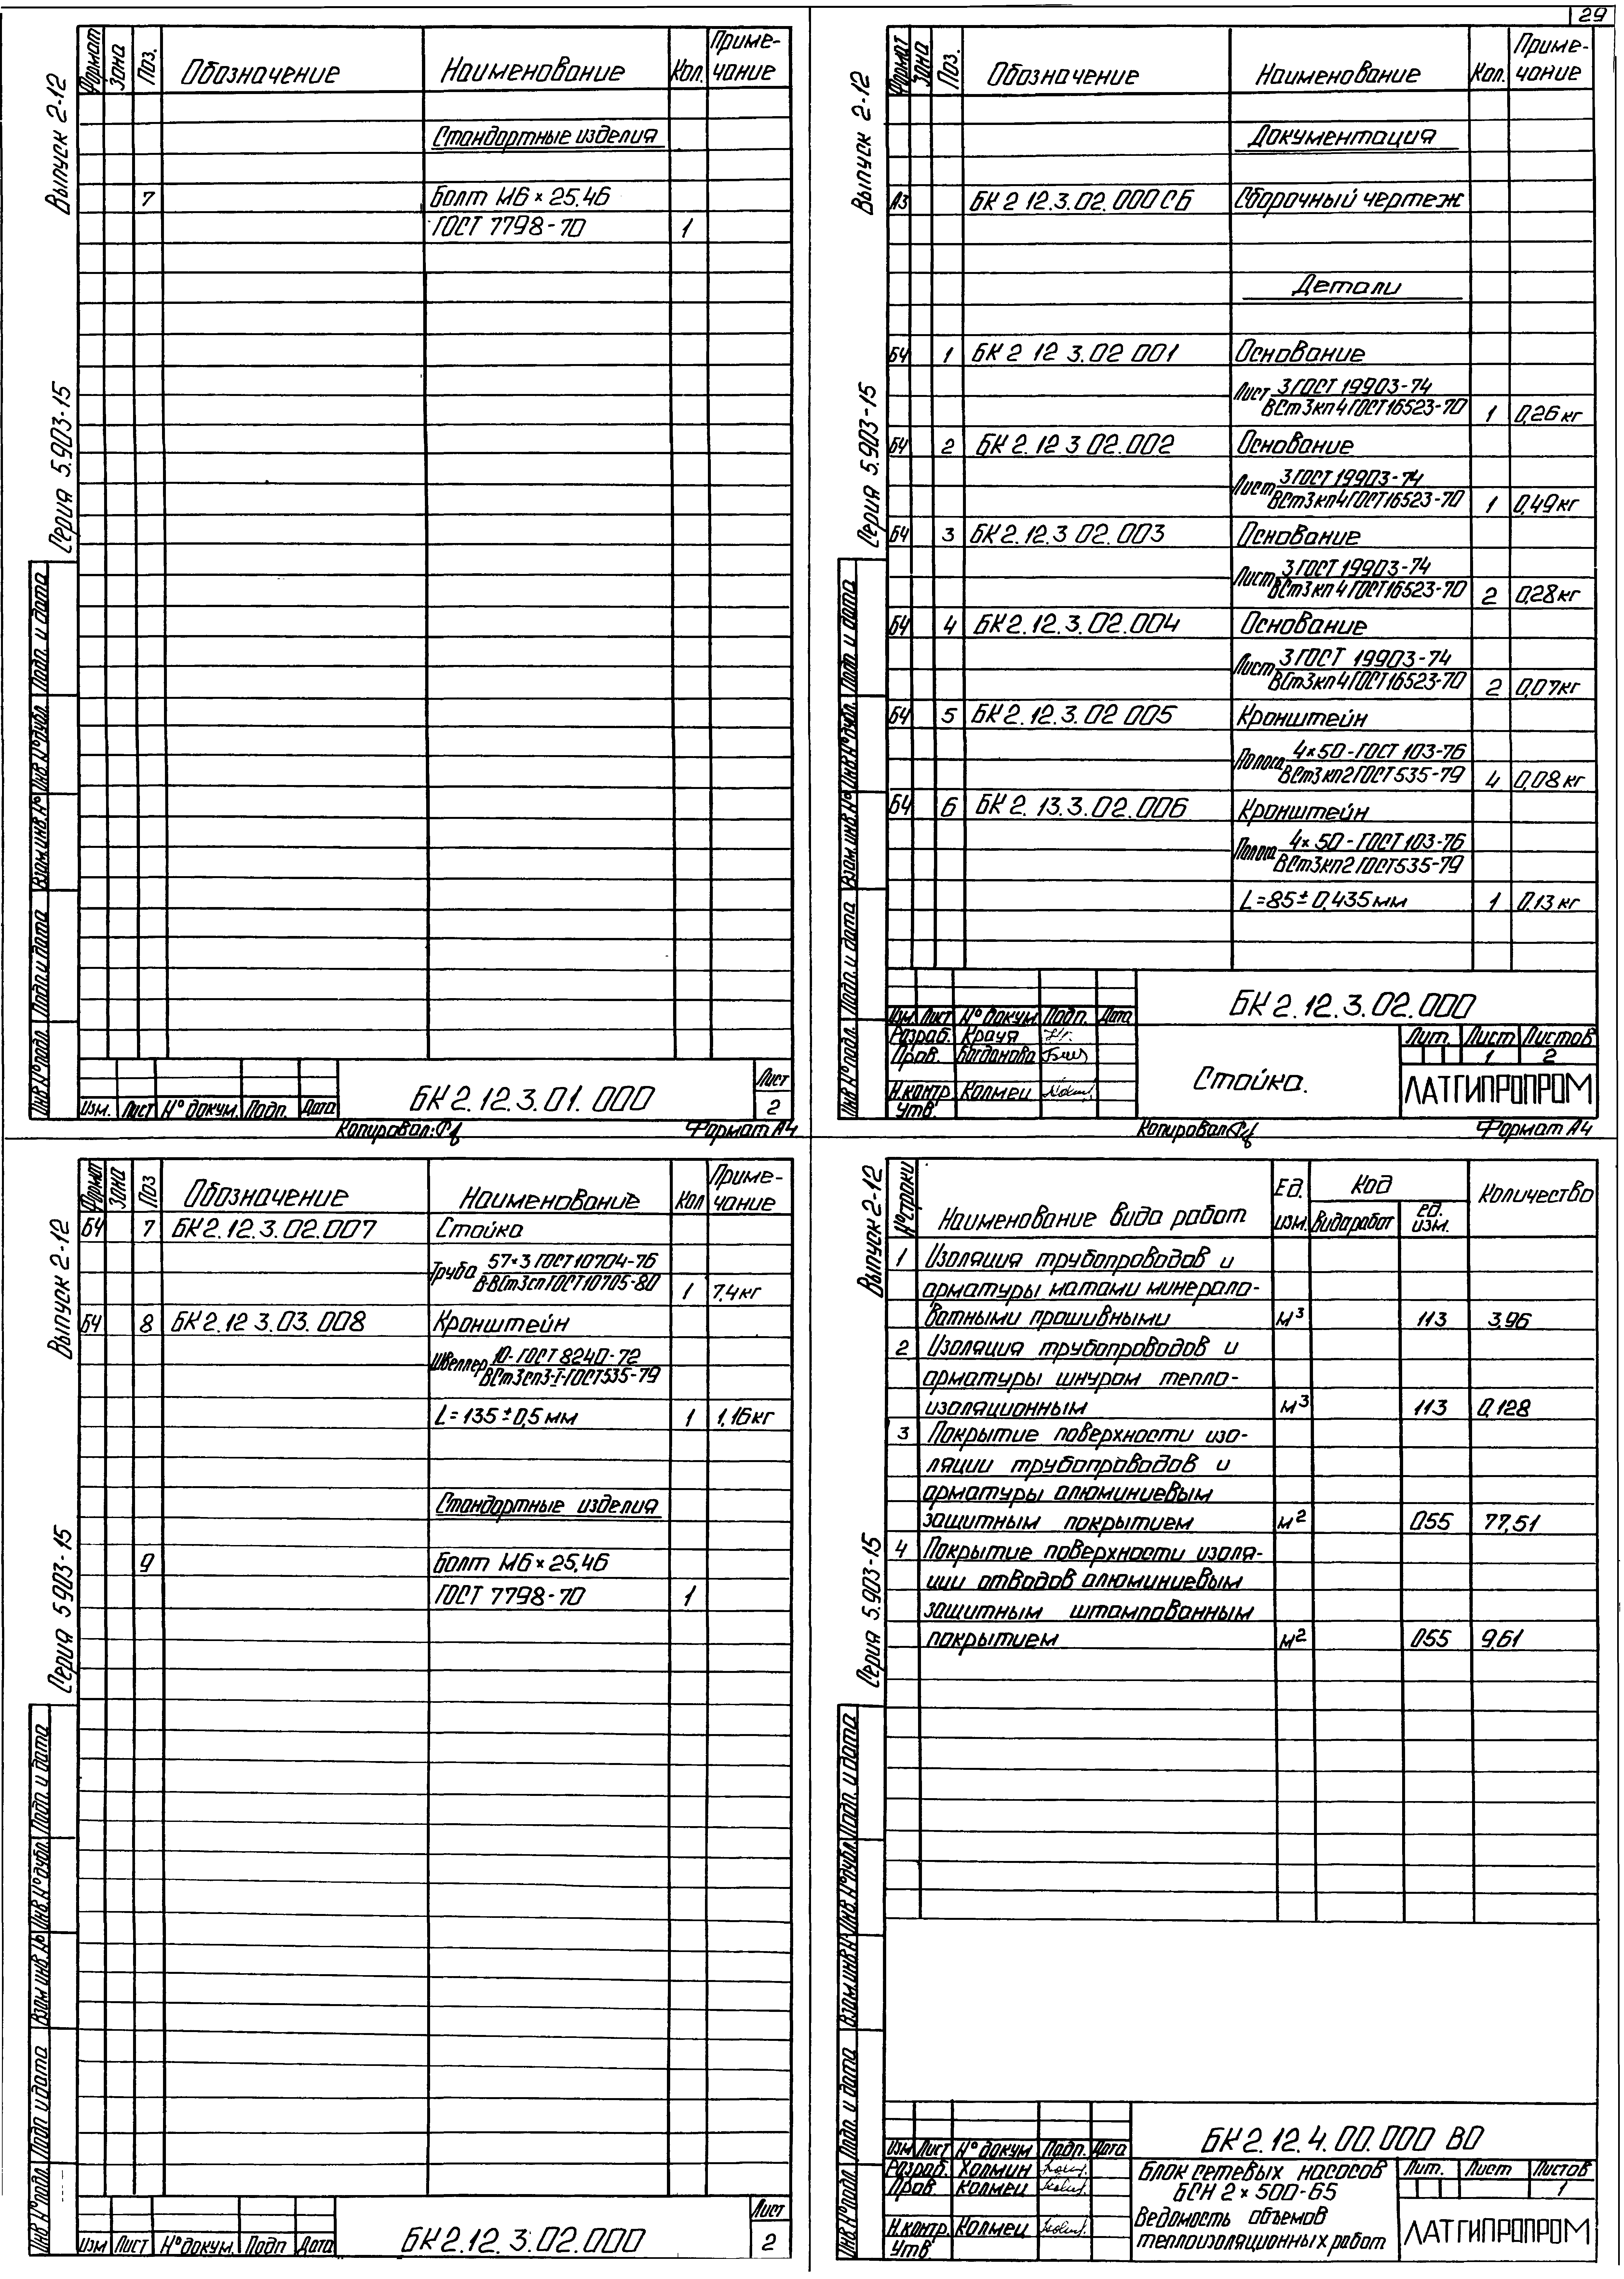 29
Выпуск 2-12
Серия 5.903-15
Формат Зона Поз. Обозначение Наименование Кол. Приме-чание
Стандартные изделия
7 Болт М6×25.46
ГОСТ 7798-70 1
Подп. и дата
Инв.№дубл.
Взам.инв.№
Подп и дата
Инв.№подл.
Изм. Лист №докум. Подп. Дата
БК 2.12.3.01.000
Лист
2
Копировал:
Формат А4
Выпуск 2-12
Серия 5.903-15
Формат Зона Поз. Обозначение Наименование Кол. Приме-чание
Документация
А3 БК 2 12.3.02.000 СБ Сборочный чертеж
Детали
БЧ 1 БК 2 12 3.02 001 Основание
Лист 3 ГОСТ 19903-74
ВСт3кп4 ГОСТ 16523-70 1 0,26 кг
БЧ 2 БК 2.12 3 02.002 Основание
Лист 3 ГОСТ 19903-74
ВСт3кп4 ГОСТ 16523-70 1 0,49 кг
БЧ 3 БК 2.12.3 02.003 Основание
Лист 3 ГОСТ 19903-74
ВСт3кп4 ГОСТ 16523-70 2 0,28 кг
БЧ 4 БК 2.12.3.02.004 Основание
Лист 3 ГОСТ 19903-74
ВСт3кп4 ГОСТ 16523-70 2 0,07 кг
БЧ 5 БК 2.12.3.02 005 Кронштейн
Полоса 4×50-ГОСТ 103-76
ВСт3кп2 ГОСТ 535-79 4 0,08 кг
БЧ 6 БК 2.13.3.02.006 Кронштейн
Полоса 4×50-ГОСТ 103-76
ВСт3кп2 ГОСТ 535-79
L=85±0,435 мм 1 0,13 кг
Подп. и дата
Инв.№дубл.
Взам.инв.№
Подп. и дата
Инв.№подл.
Изм Лист № докум. Подп. Дата
Разраб. Крауя
Пров. Богданова
Н.контр Колмец
Утв.
БК 2.12.3.02.000
Стойка.
Лит. Лист Листов
1 2
ЛАТГИПРОПРОМ
Копировал
Формат А4
Выпуск 2-12
Серия 5.903-15
Формат Зона Поз Обозначение Наименование Кол Приме-чание
БЧ 7 БК 2.12.3.02.007 Стойка
Труба 57×3 ГОСТ 10704-76
В-ВСт3сп ГОСТ 10705-80 1 7,4 кг
БЧ 8 БК 2.12 3.03.008 Кронштейн
Швеллер 10-ГОСТ 8240-72
ВСт3сп3-I-ГОСТ 535-79
L=135±0,5 мм 1 1,16 кг
Стандартные изделия
9 Болт М6×25.46
ГОСТ 7798-70 1
Подп. и дата
Инв.№дубл.
Взам инв.№
Подп и дата
Инв №подл.
Изм Лист №докум. Подп Дата
БК 2.12.3.02.000
Лист
2
Выпуск 2-12
Серия 5.903-15
№строки Наименование вида работ Ед. изм. Код Вида работ ед. изм. Количество
1 Изоляция трубопроводов и
арматуры матами минерало-
ватными прошивными м³ 113 3,96
2 Изоляция трубопроводов и
арматуры шнуром тепло-
изоляционным м³ 113 0,128
3 Покрытие поверхности изо-
ляции трубопроводов и
арматуры алюминиевым
защитным покрытием м² 055 77,51
4 Покрытие поверхности изоля-
ции отводов алюминиевым
защитным штампованным
покрытием м² 055 9,61
Подп. и дата
Инв.№дубл.
Взам.инв.№
Подп. и дата
Инв.№подл.
Изм Лист № докум Подп. Дата
Разраб. Холмин
Пров Колмец
Н.контр. Колмец
Утв.
БК 2.12.4.00.000 ВО
Блок сетевых насосов
БСН 2×500-65
Ведомость объемов
теплоизоляционных работ
Лит. Лист Листов
1
ЛАТГИПРОПРОМ